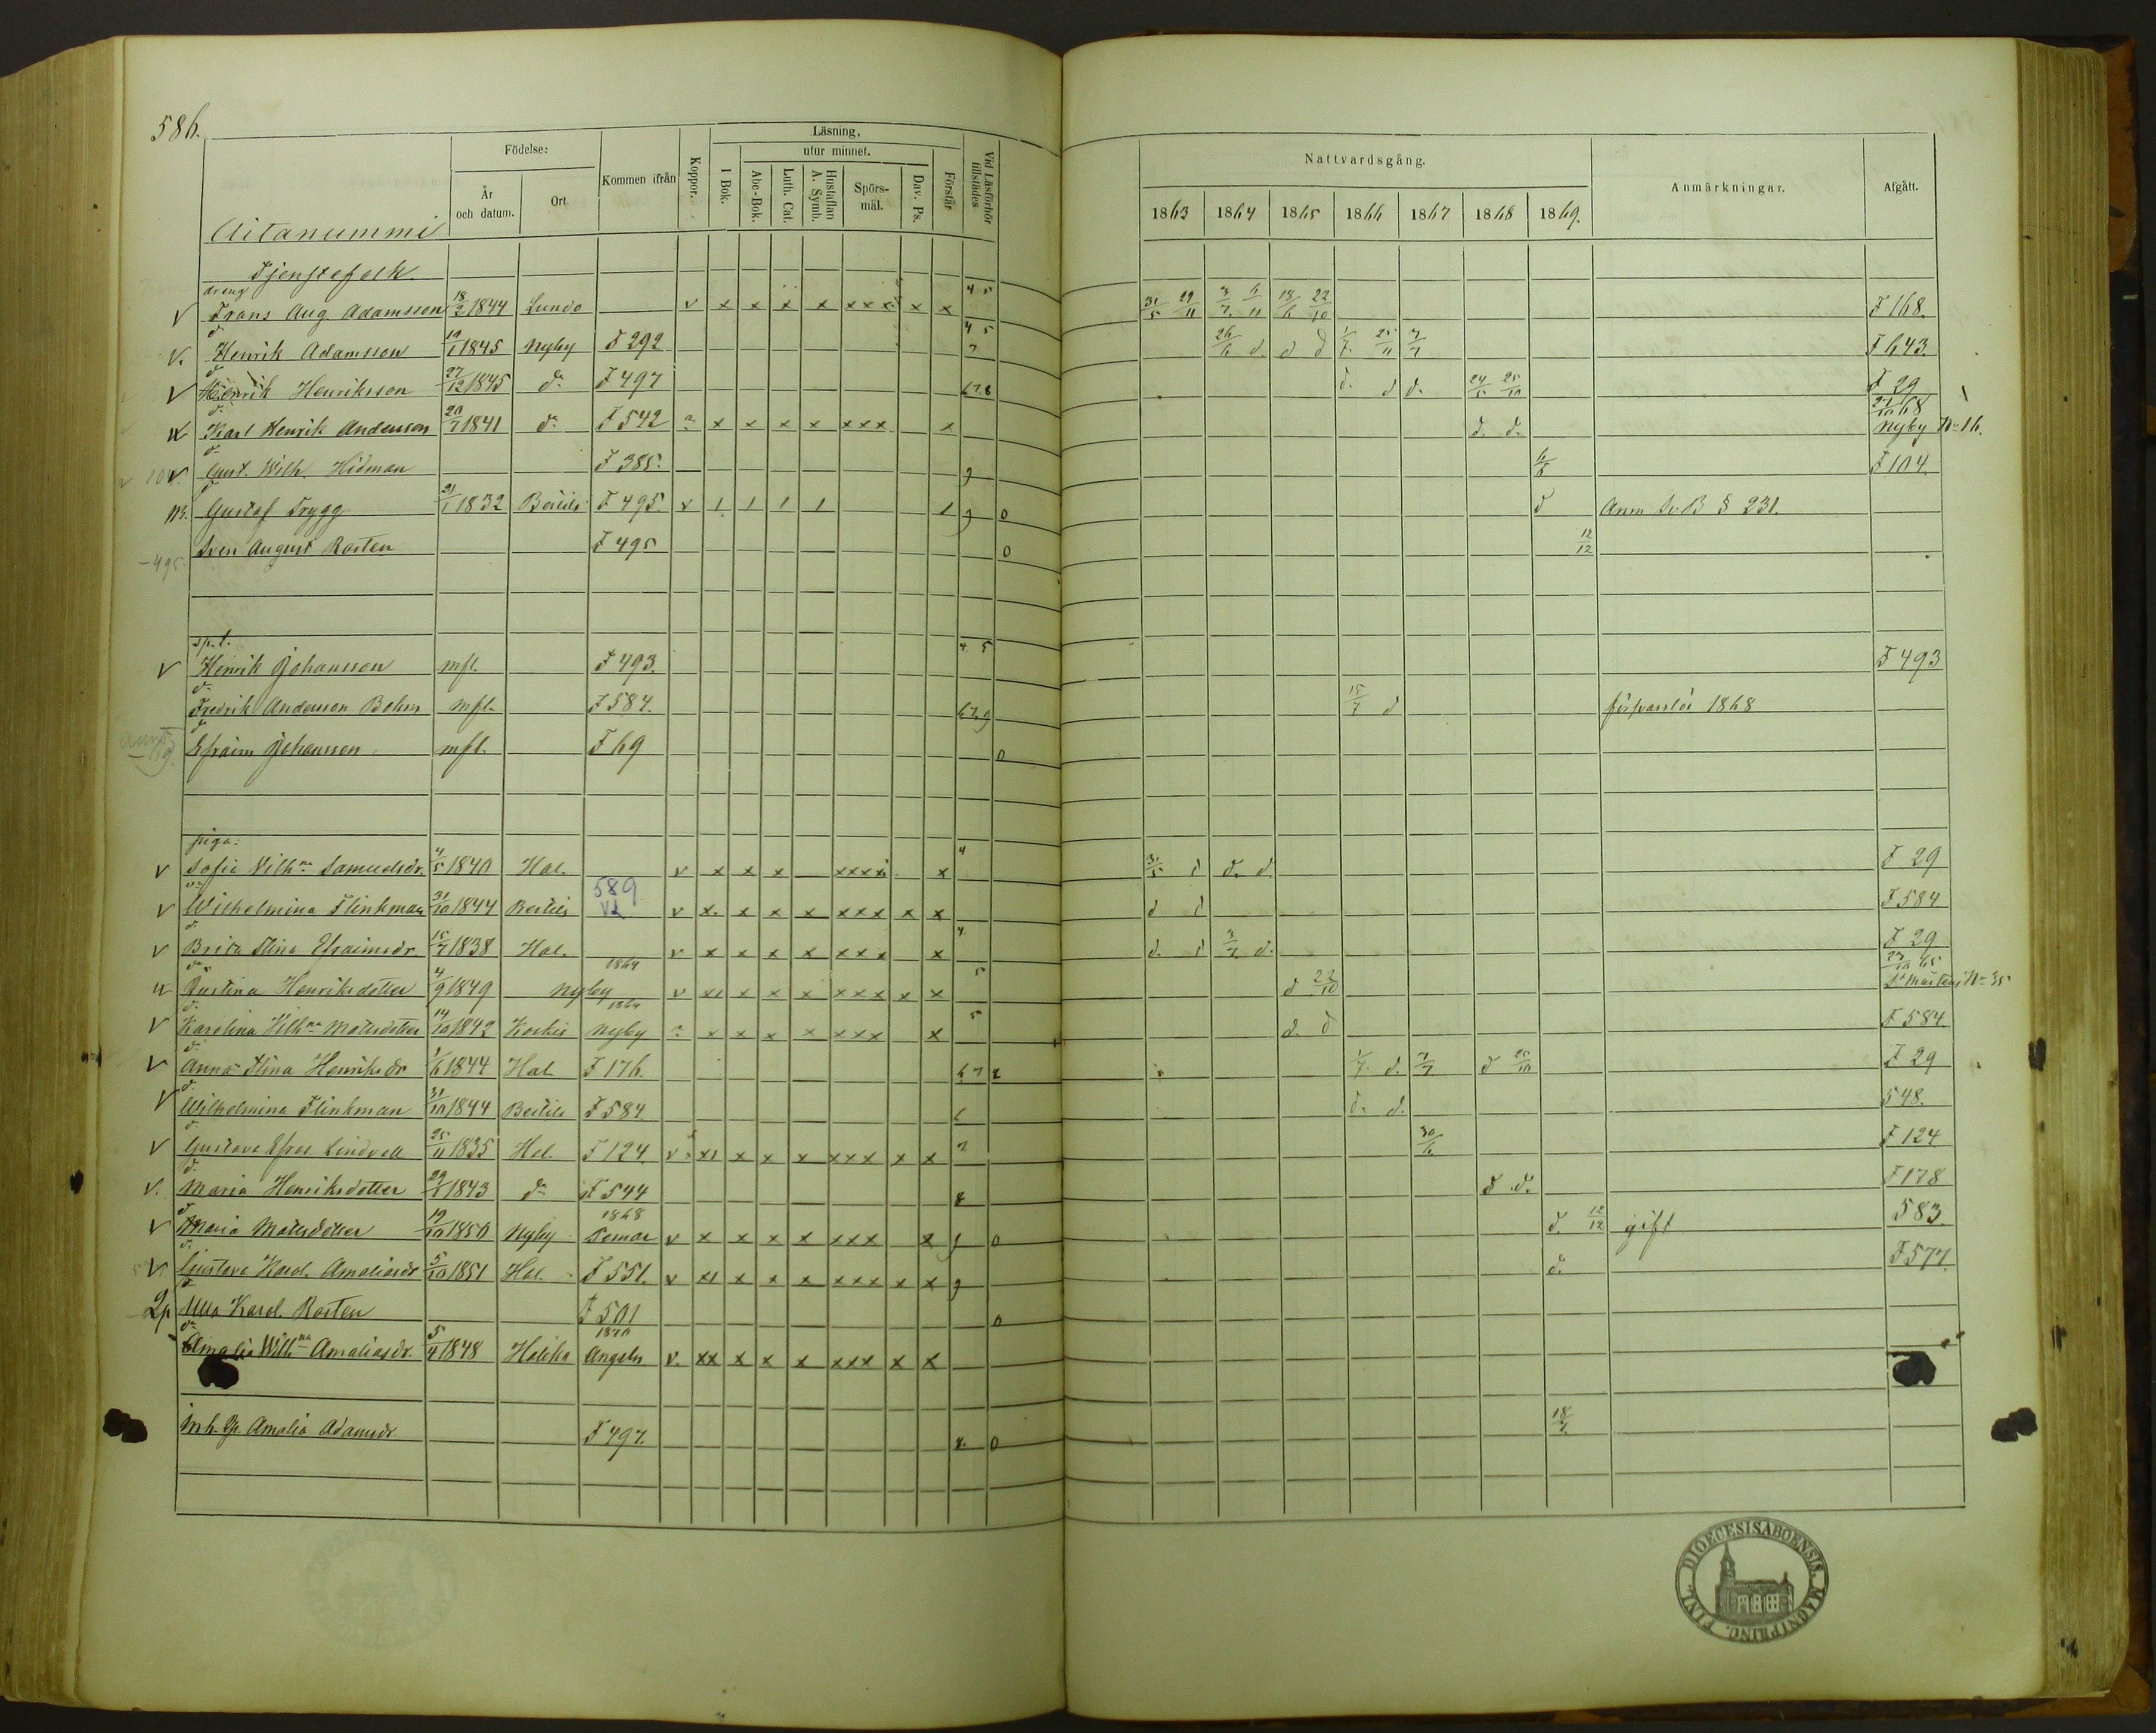 586.
Födelse:
Läsning,
utur minnet.
Kommen ifrån
Koppor.
I Bok.
Abc-Bok.
Luth. Cat.
Hustaflan
A. Symb.
Spörs-
mål.
Dav. Ps.
Förstår
Vid Läsförhör
tillstädes
År
och datum.
Ort
Nattvardsgång.
Anmärkningar.
Afgått.
1863 1864 1865 1866 1867 1868 1869.
Aitanummi
Tjenstefolk.
dreng
Frans Aug. Adamsson 18/2 1844 Lundo v x x x x xxx x x 4 5 31/5 29/11 3/7 6/11 18/6 22/10 F 168.
d:
Henrik Adamsson 1845 Nyby F 292 4 5 7 26/6 d. d d 1/7. 25/11 7/7 F 643.
d:
Henrik Henriksson 27/12 1845 d:o F 497 678 d. d d. 24/5 25/10 F 29
d:
Karl Henrik Andersson 20/7 1841 d:o F 542 x x x x xxx x d. d. Nyby No 16.
d:
Gust. Wilh. Hidman F 385. 9 6/6 F 104.
d:
Gustaf Trygg 21/1 1832 Bertils F 495. v 1 1 1 1 1 9 0 d Anm Sv. B § 231.
Sven August Rosten F 495 0 12/12
-495.
sp. t.
Henrik Johansson mfl. F 493. 4 5 F 493
d:o
Fredrik Andersson Bohm mfl. F 584. 679 15/7 d försvarslös 1868
d:
Efraim Johansson mfl. F 69 0
piga:
Sofia Wilh:na Samuelsdr. 4/5 1840 Hal. v x x x xxxx x 4 31/5 d d. d. F 29
589
Wilhelmina Flinkman 31/10 1844 Bertils v x. x x x xxx x x d d F 584.
d:
Brita Stina Efraimsdr. 15/7 1838 Hal. v x x x x xxx x 4. d. d 3/7 d. F 29
1864
Justina Henriksdotter 4/9 1849 Nyby v x x x x xxx x x 5 d 22/10 St Mårtens No 35
d:
Karolina Wilh:na Matsdotter 14/10 1842 Koskis Nyby x x x x xxx x 5 d. d F 584.
d:
Anna Stina Henriksdr 1/6 1844 Hal. F 176. 67 1/7. d. 7/7 d 25/10 F 29
d.
Wilhelmina Flinkman 31/10 1844 Bertils F 584 6 d. d. 548.
d:
Gustava Efros. Lindvall 25/11 1835 Hal. F 124. v x x x x xxx x x 7 30/6. F 124
d.
Maria Henriksdotter 1843 d:o F 544 8 d d. F 178
1868
Maria Matsdotter 19/10 1850 Nyby Pemar v x x x x xxx x 9 0 d. 12/12 gift 583.
d:
Gustava Karol. Amaliasdr 5/10 1851 Hal. F 551. v x x x x xxx x x 9 d. F 577.
Ulla Karol. Rosten F 501 0
1870
Amalia Wilh:na Amaliasdr. 5/4 1848 Halikko Angeln v. xx x x x xxx x x
Inh. Pg. Amalia Adamsdr. F 497. 8. 0 18/7.
FINL. DIOECESIS ABOENSIS. MAGN. PRINC.